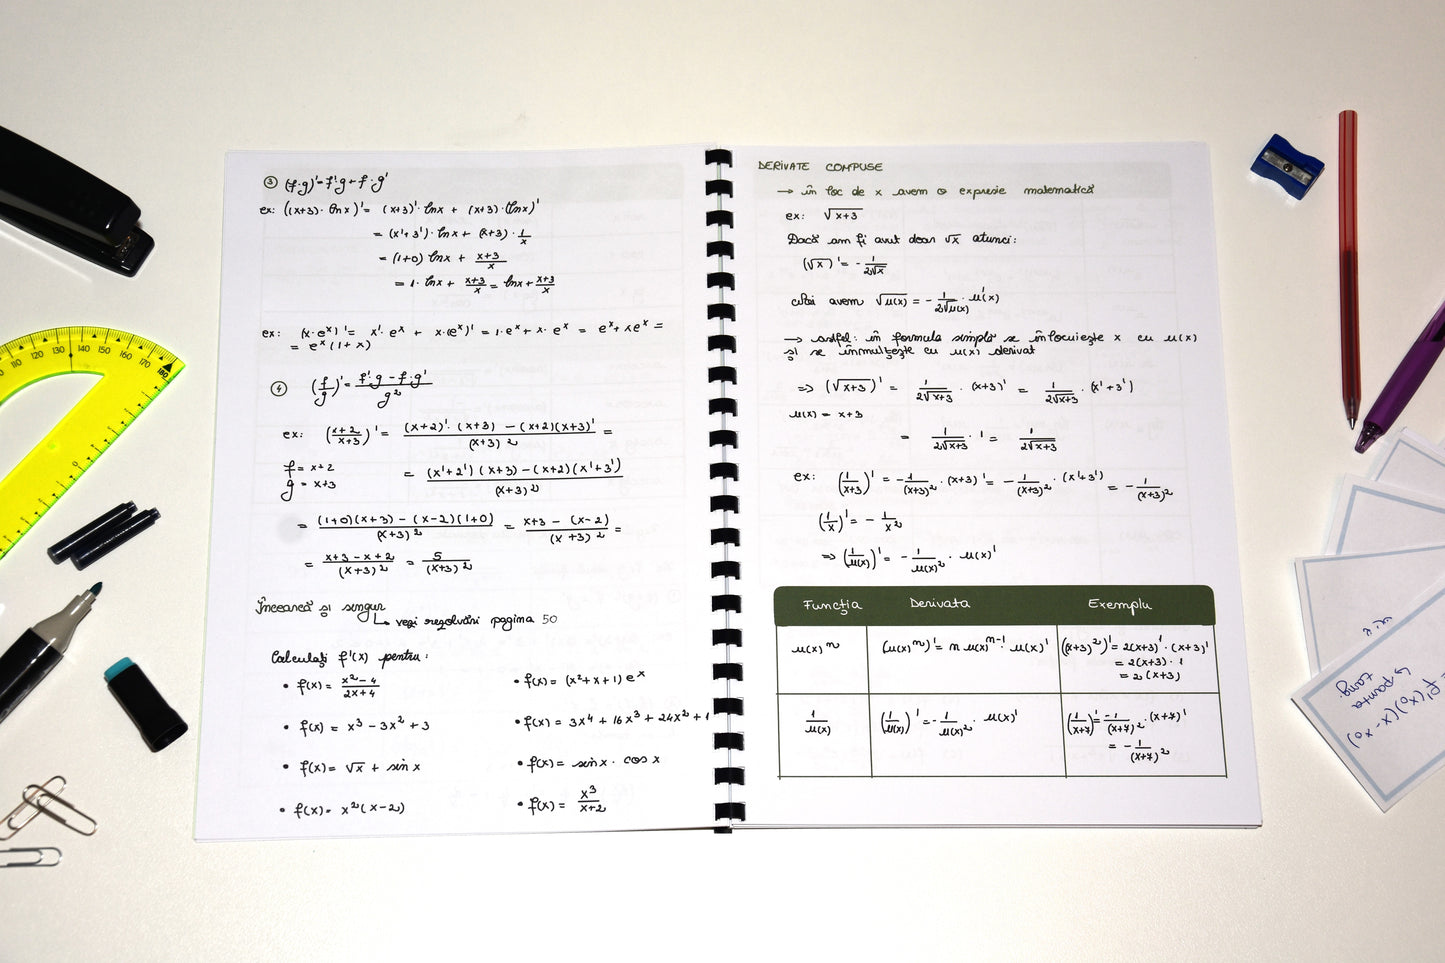 ③ (f·g)' = f'·g + f·g'
ex: ((x+3)·ln x)' = (x+3)'·ln x + (x+3)·(ln x)'
= (x'+3')·ln x + (x+3)·1/x
= (1+0) ln x + (x+3)/x
= 1·ln x + (x+3)/x = ln x + (x+3)/x
ex: (x·eˣ)' = x'·eˣ + x·(eˣ)' = 1·eˣ + x·eˣ = eˣ + xeˣ =
= eˣ(1+x)
④ (f/g)' = (f'·g - f·g')/g²
ex: ((x+2)/(x+3))' = ((x+2)'·(x+3) - (x+2)(x+3)')/(x+3)² =
f = x+2
g = x+3
= ((x'+2')(x+3) - (x+2)(x'+3'))/(x+3)²
= ((1+0)(x+3) - (x-2)(1+0))/(x+3)² = (x+3 - (x-2))/(x+3)² =
= (x+3-x+2)/(x+3)² = 5/(x+3)²
Încearcă și singur
↳ vezi rezolvări pagina 50
Calculați f'(x) pentru:
• f(x) = (x²-4)/(2x+4)
• f(x) = (x²+x+1)eˣ
• f(x) = x³ - 3x² + 3
• f(x) = 3x⁴ + 16x³ + 24x² + 1
• f(x) = √x + sin x
• f(x) = sin x · cos x
• f(x) = x²(x-2)
• f(x) = x³/(x+2)
DERIVATE COMPUSE
→ în loc de x avem o expresie matematică
ex: √(x+3)
Dacă am fi avut doar √x atunci:
(√x)' = - 1/(2√x)
Noi avem √u(x) = - 1/(2√u(x)) · u'(x)
→ astfel: în formula simplă se înlocuiește x cu u(x)
și se înmulțește cu u(x) derivat
=> (√(x+3))' = 1/(2√(x+3)) · (x+3)' = 1/(2√(x+3)) · (x'+3')
u(x) = x+3
= 1/(2√(x+3)) · 1 = 1/(2√(x+3))
ex: (1/(x+3))' = - 1/(x+3)² · (x+3)' = - 1/(x+3)² · (x'+3') = - 1/(x+3)²
(1/x)' = - 1/x²
=> (1/u(x))' = - 1/u(x)² · u(x)'
Funcția Derivata Exemplu
u(x)ⁿ (u(x)ⁿ)' = n u(x)ⁿ⁻¹ · u(x)' ((x+3)²)' = 2(x+3)' · (x+3)'
= 2(x+3) · 1
= 2(x+3)
1/u(x) (1/u(x))' = - 1/u(x)² · u(x)' (1/(x+7))' = -1/(x+7)² · (x+7)'
= - 1/(x+7)²
= f'(x₀)(x-x₀)
↳ panta
tang.
110 120 130 140 150 160 170 180
0